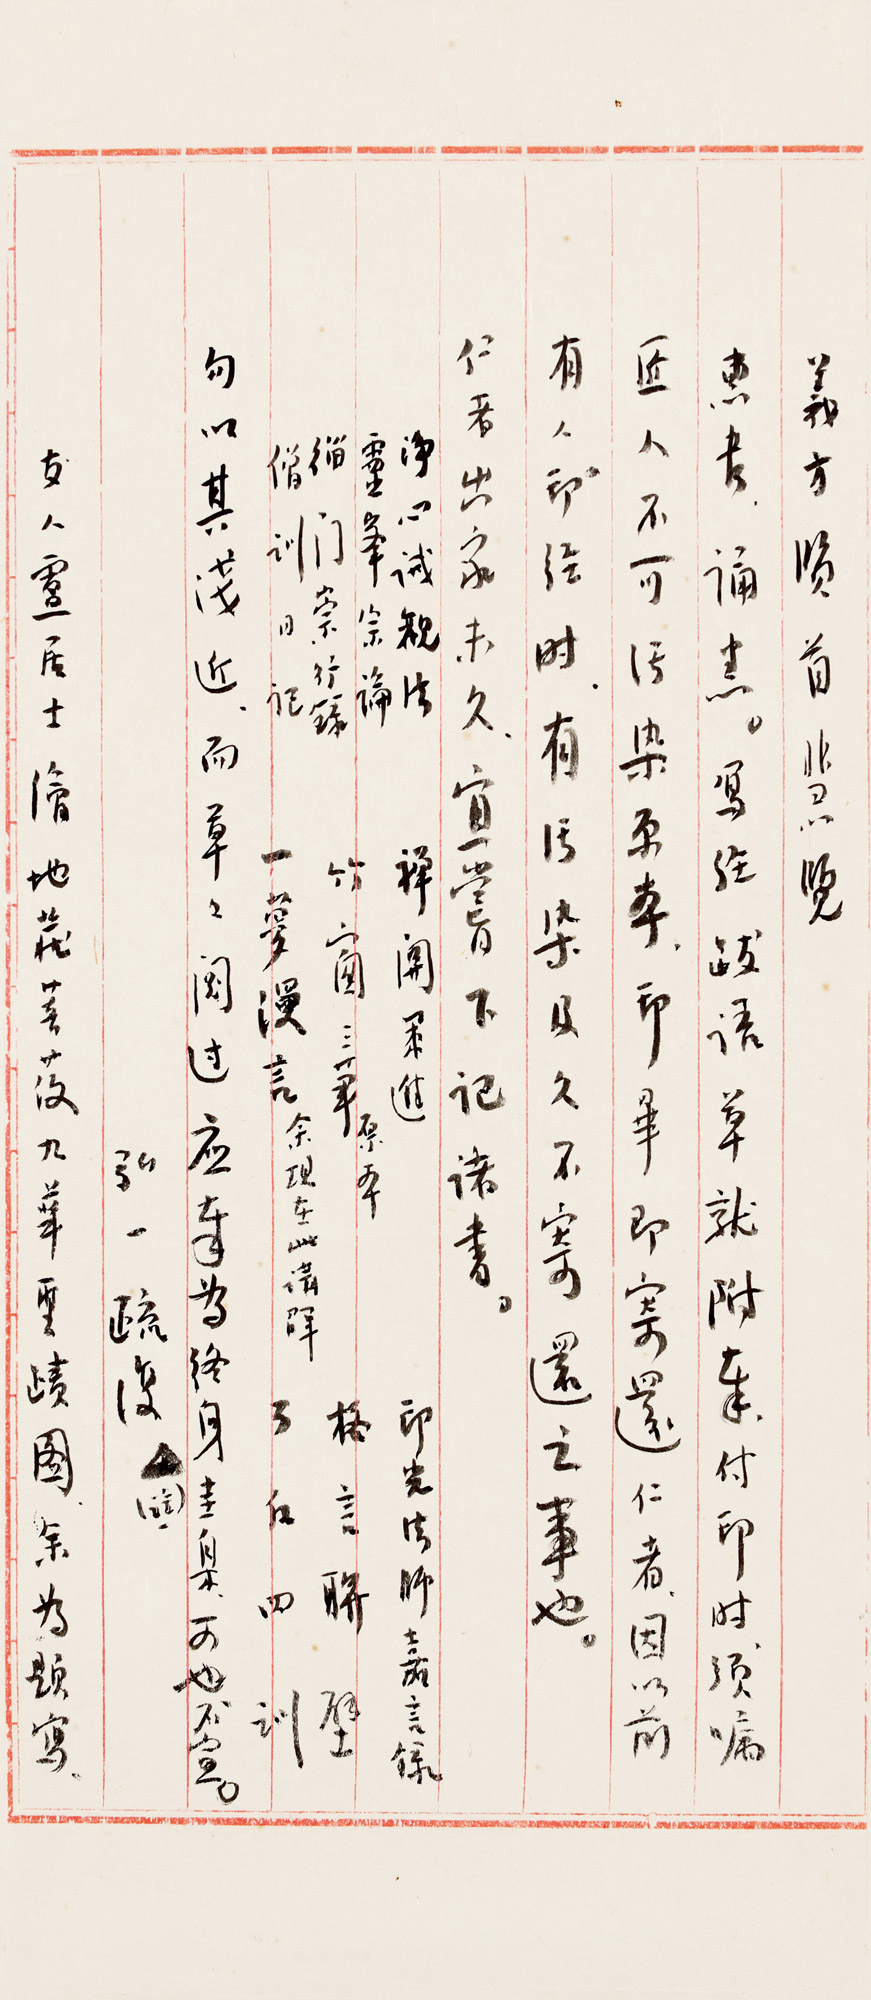 義方賢首慧覽
惠書誦悉。寫經跋語草就附奉、付印時須嘱
匠人不可污染原本、印畢即寄還仁者、因以前
有人印經時、有污染及久不寄還之事也。
仁者出家未久、宜嘗下記諸書。
淨心誡觀法 禪關策進 印光法師嘉言錄
靈峯宗論 竹窗三筆原本 格言聯璧
緇门崇行錄 一夢漫言余現在此講解
僧訓日記 了凡四訓
勿以其浅近、而草々閱过应奉為終身圭臬、可也不宣。
弘一疏復
友人盧居士繪地藏菩薩九華聖蹟图、余為題寫、